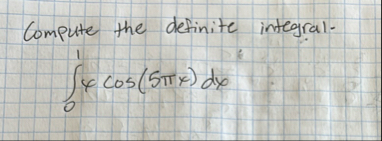 Compute the definite integral.
∫₀¹ x cos(5πx) dx